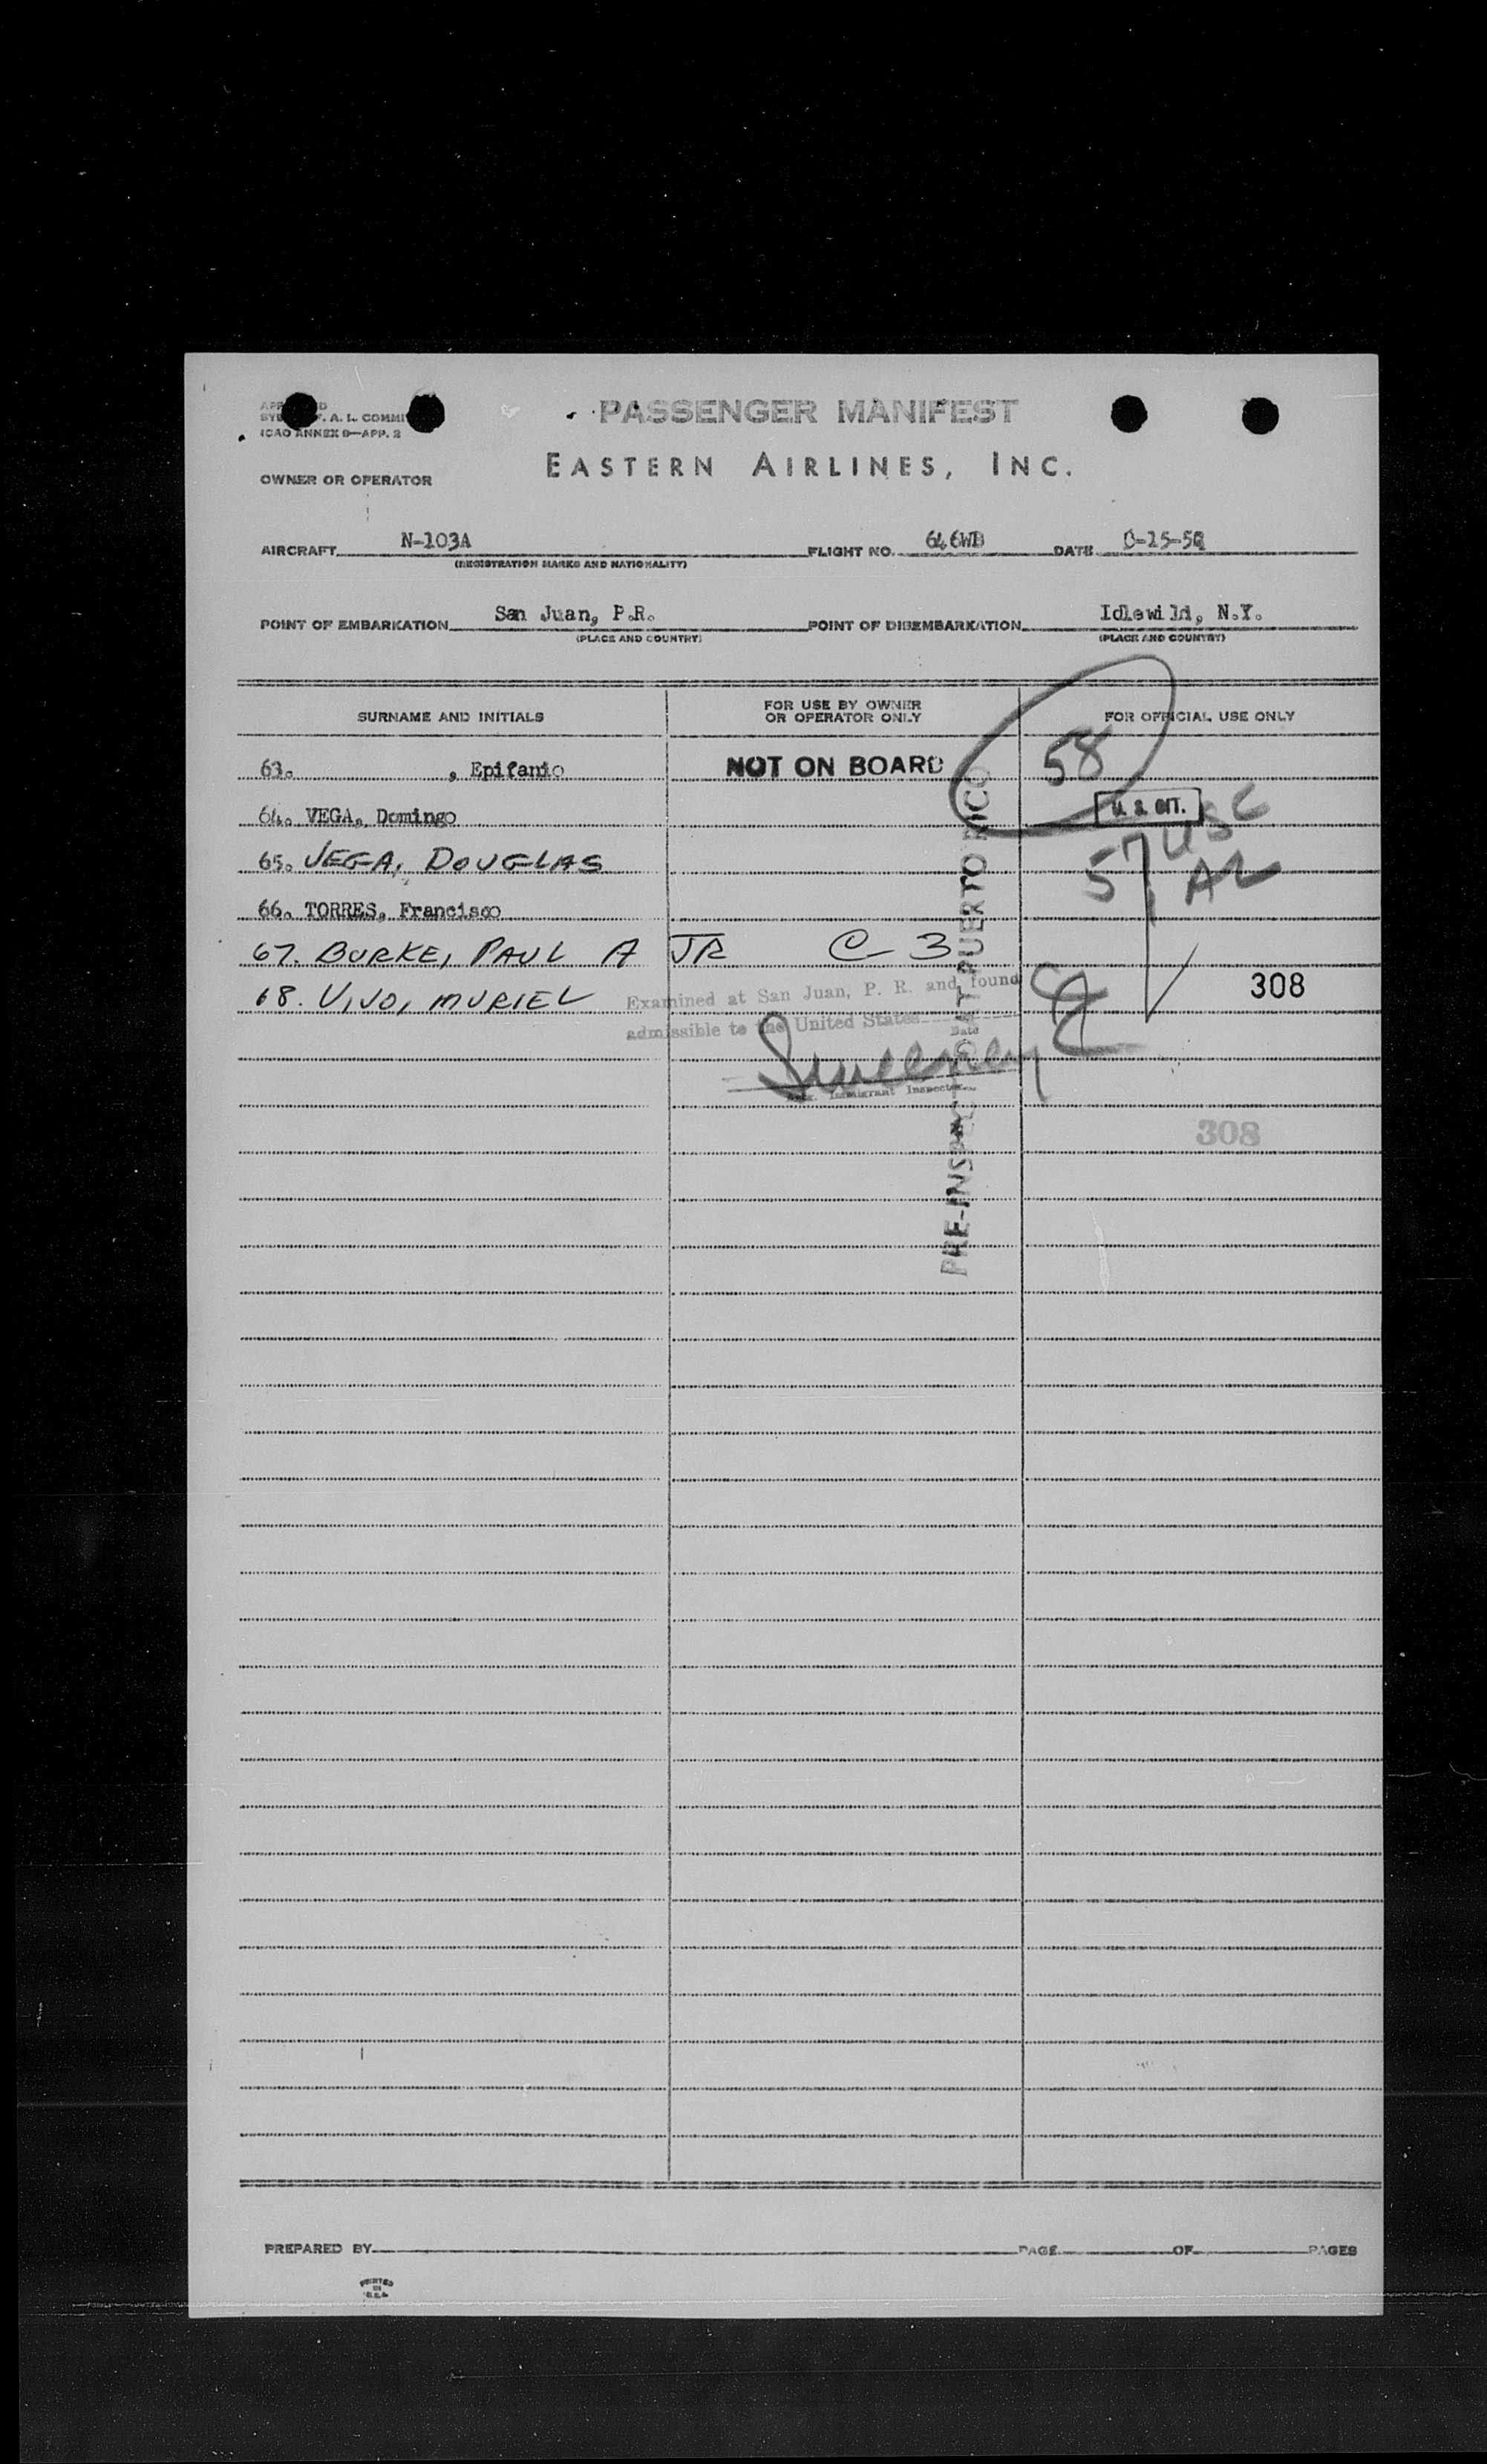 PASSENGER MANIFEST
ICAO ANNEX 9—APP. 2
EASTERN AIRLINES, INC.
OWNER OR OPERATOR
AIRCRAFT N-103A FLIGHT NO. 646WB DATE
(REGISTRATION MARKS AND NATIONALITY)
POINT OF EMBARKATION San Juan, P.R. POINT OF DISEMBARKATION Idlewild, N.Y.
(PLACE AND COUNTRY) (PLACE AND COUNTRY)
SURNAME AND INITIALS FOR USE BY OWNER OR OPERATOR ONLY FOR OFFICIAL USE ONLY
63. , Epifanio NOT ON BOARD 58
64. VEGA, Domingo U. S. CIT.
65. VEGA, DOUGLAS 57 USC
66. TORRES, Francisco
67. BURKE, PAUL A JR C-3
68. VIVO, MURIEL 308
Examined at San Juan, P. R. and found
admissible to the United States
Date
Sweeney
Immigrant Inspector
PRE-INSPECTED AT PUERTO RICO
308
PREPARED BY PAGE OF PAGES
PRINTED
IN
U.S.A.